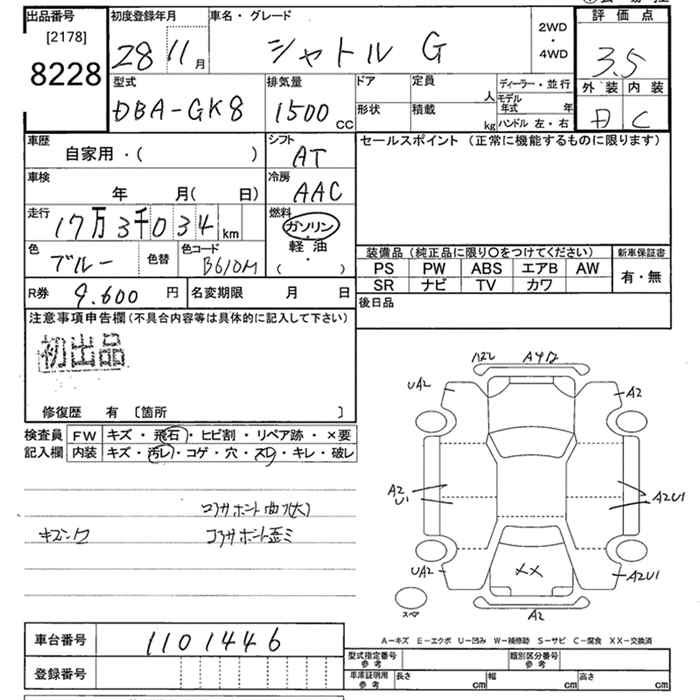 出品番号
[2178]
8228
初度登録年月
28 11 月
車名・グレード
シャトル G
2WD
・
4WD
評価点
3.5
外装 内装
C
型式
DBA-GK8
排気量
1500 CC
ドア
定員
人
形状
積載
kg
ディーラー・並行
モデル年式 年
ハンドル 左・右
車歴
自家用・( )
シフト
AT
セールスポイント (正常に機能するものに限ります)
車検
年 月( 日)
冷房
AAC
走行
17万3千034 km
燃料
ガソリン
・
軽油
・
( )
色
ブルー
色替
色コード
B610M
装備品 (純正品に限り〇をつけてください)
新車保証書
PS PW ABS エアB AW
有・無
SR ナビ TV カワ
R券 9.600 円
名変期限 月 日
後日品
注意事項申告欄 (不具合内容等は具体的に記入して下さい)
初出品
修復歴 有 〔箇所 〕
検査員
記入欄
FW キズ・飛石・ヒビ割・リペア跡・×要
内装 キズ・汚レ・コゲ・穴・スレ・キレ・破レ
コアサポート曲フ(大)
コアサポート歪ミ
UA2
A2
A2
U1
A2U1
UA2
A2U1
××
スペア
A2
A－キズ E－エクボ U－凹み W－補修跡 S－サビ C－腐食 XX－交換済
車台番号
1101446
登録番号
型式指定番号
参考
類別区分番号
参考
車庫証明用
参考
長さ cm
幅 cm
高さ cm